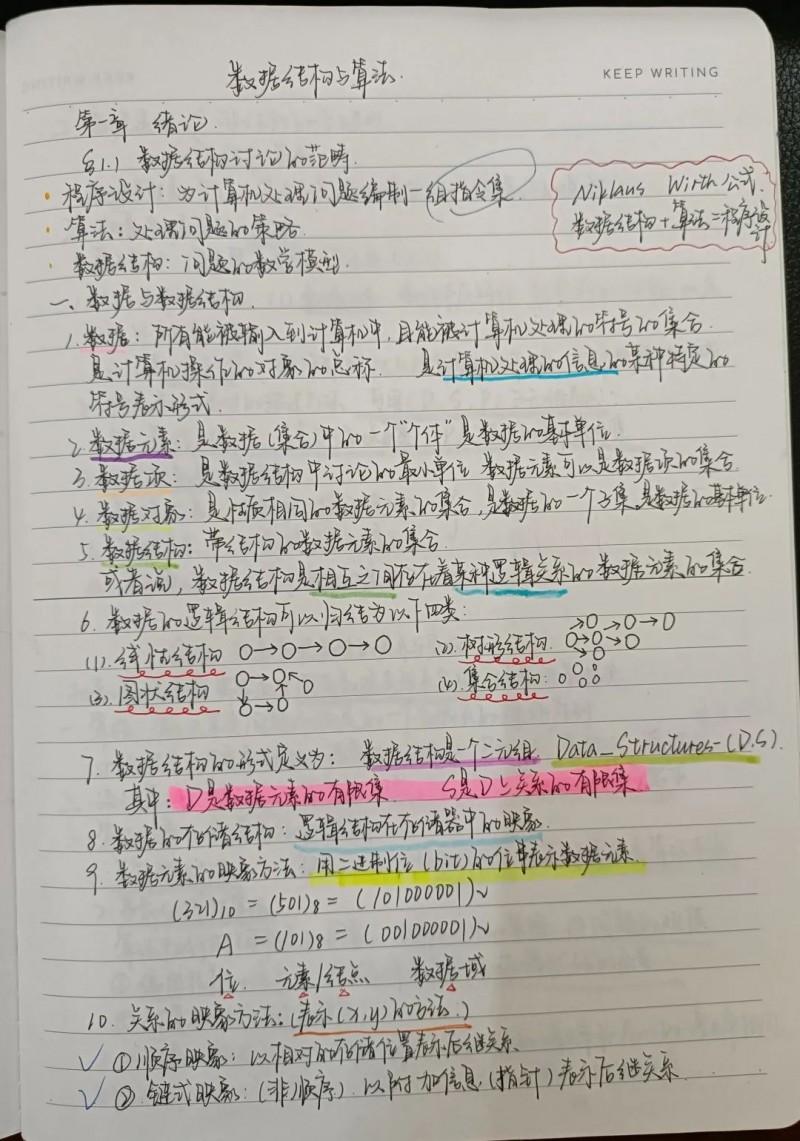 KEEP WRITING
数据结构与算法.
第一章 绪论.
§1.1 数据结构讨论的范畴.
· 程序设计: 为计算机处理问题编制一组指令集.
Niklaus Wirth公式.
数据结构+算法=程序设计
· 算法: 处理问题的策略.
· 数据结构: 问题的数学模型.
一、数据与数据结构.
1. 数据: 所有能被输入到计算机中, 且能被计算机处理的符号的集合.
是计算机操作的对象的总称. 是计算机处理的信息的某种特定的
符号表示形式.
2. 数据元素: 是数据(集合)中的一个"个体"是数据的基本单位.
3. 数据项: 是数据结构中讨论的最小单位 数据元素可以是数据项的集合.
4. 数据对象: 是性质相同的数据元素的集合, 是数据的一个子集, 是数据的基本单位.
5. 数据结构: 带结构的数据元素的集合.
或者说, 数据结构是相互之间存在着某种逻辑关系的数据元素的集合.
6. 数据的逻辑结构可以归结为以下四类:
(1). 线性结构 (2). 树形结构.
(3). 图状结构 (4). 集合结构:
7. 数据结构的形式定义为: 数据结构是一个二元组. Data_Structures-(D.S).
其中: D是数据元素的有限集. S是D上关系的有限集.
8. 数据的存储结构: 逻辑结构在存储器中的映象.
9. 数据元素的映象方法: 用二进制位(bit)的位串表示数据元素.
(321)10 = (501)8 = (101000001)2
A = (101)8 = (001000001)2
位. 元素/结点 数据域
10. 关系的映象方法: (表示(x,y)的方法.)
✓ ①顺序映象: 以相对的存储位置表示后继关系.
✓ ②. 链式映象: (非顺序). 以附加信息(指针)表示后继关系.